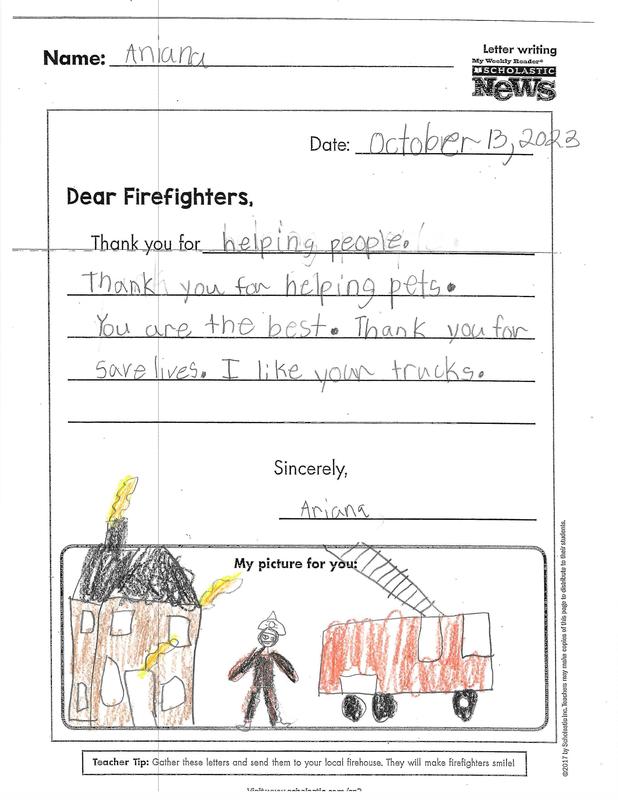 Name: Ariana
Letter writing
My Weekly Reader®
SCHOLASTIC
News
Date: October 13, 2023
Dear Firefighters,
Thank you for helping people.
Thank you for helping pets.
You are the best. Thank you for
save lives. I like your trucks.
Sincerely,
Ariana
My picture for you:
©2017 by Scholastic Inc. Teachers may make copies of this page to distribute to their students.
Teacher Tip: Gather these letters and send them to your local firehouse. They will make firefighters smile!